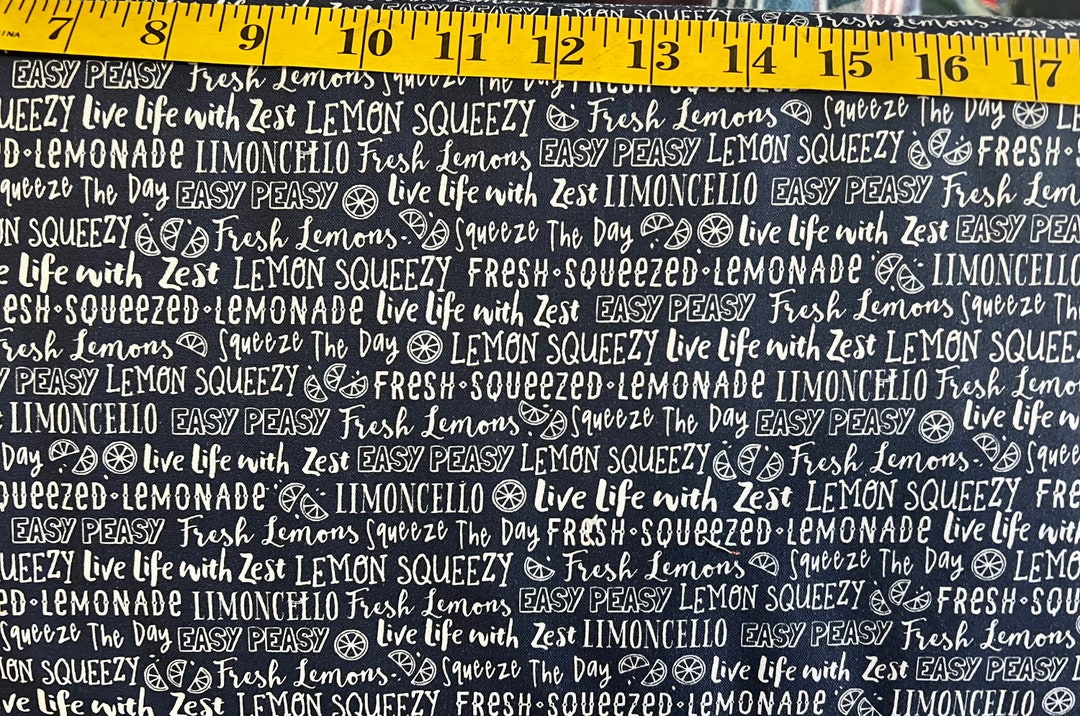 EASY PEASY LEMON SQUEEZY Fresh Lemons
INA 7 8 9 10 11 12 13 14 15 16 17
EASY PEASY Fresh Lemons Squeeze The Day FRESH SQUEEZED
UEEZY Live Life with Zest LEMON SQUEEZY Fresh Lemons Squeeze The Day LE
D·LEMONADE LIMONCELLO Fresh Lemons EASY PEASY LEMON SQUEEZY FRESH·S
queeze The Day EASY PEASY Live Life with Zest LIMONCELLO EASY PEASY Fresh Lem
N SQUEEZY Fresh Lemons Squeeze The Day Live Life with Zest EASY PEA
e Life with Zest LEMON SQUEEZY FRESH·SQUEEZED·LEMONADE LIMONCELLO
ESH·SQUEEZED·LEMONADE Live Life with Zest EASY PEASY Fresh Lemons Squeeze Th
resh Lemons Squeeze The Day LEMON SQUEEZY Live Life with Zest LEMON SQUEE
Y PEASY LEMON SQUEEZY FRESH·SQUEEZED·LEMONADE LIMONCELLO Fresh Lemo
t LIMONCELLO EASY PEASY Fresh Lemons Squeeze The Day EASY PEASY Live Life w
Day Live Life with Zest EASY PEASY LEMON SQUEEZY Fresh Lemons Squee
QUEEZED·LEMONADE LIMONCELLO Live Life with Zest LEMON SQUEEZY FRE
EASY PEASY Fresh Lemons Squeeze The Day FRESH·SQUEEZED·LEMONADE Live Life with
UEEZY Live Life with Zest LEMON SQUEEZY Fresh Lemons Squeeze The Day LEMO
ED·LEMONADE LIMONCELLO Fresh Lemons EASY PEASY LEMON SQUEEZY FRESH·SQU
Squeeze The Day EASY PEASY Live Life with Zest LIMONCELLO EASY PEASY Fresh Lemons
ON SQUEEZY Fresh Lemons Squeeze The Day Live Life with Zest EASY PEASY L
ve Life with Zest LEMON SQUEEZY FRESH·SQUEEZED·LEMONADE LIMONCELLO